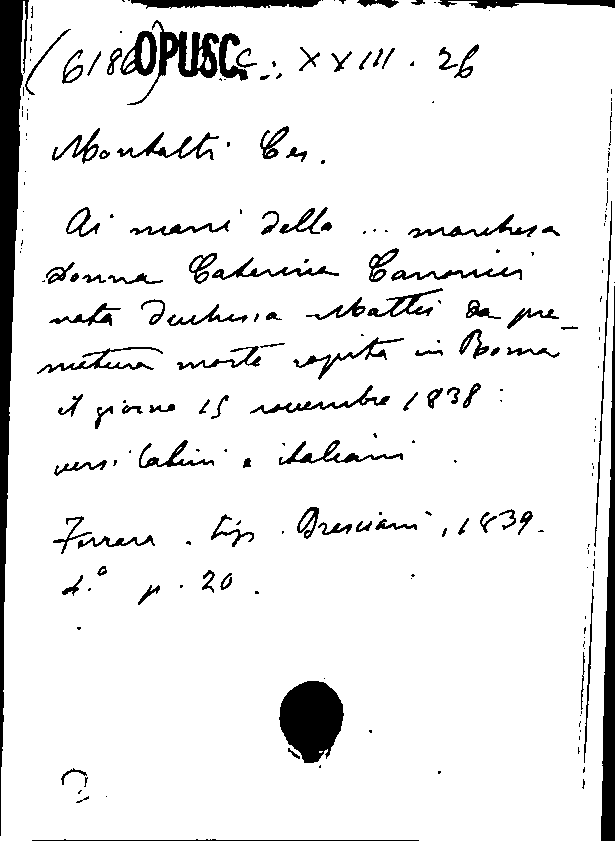 (6186) OPUSC. C. : XXIII. 26
Montalti Ces.
Ai mani della ... marchesa
Donna Caterina Canonici
nata duchessa Mattei da pre-
matura morte rapita in Roma
il giorno 15 novembre 1838 :
versi latini e italiani.
Ferrara. tip. Bresciani, 1839.
4.° p. 20.